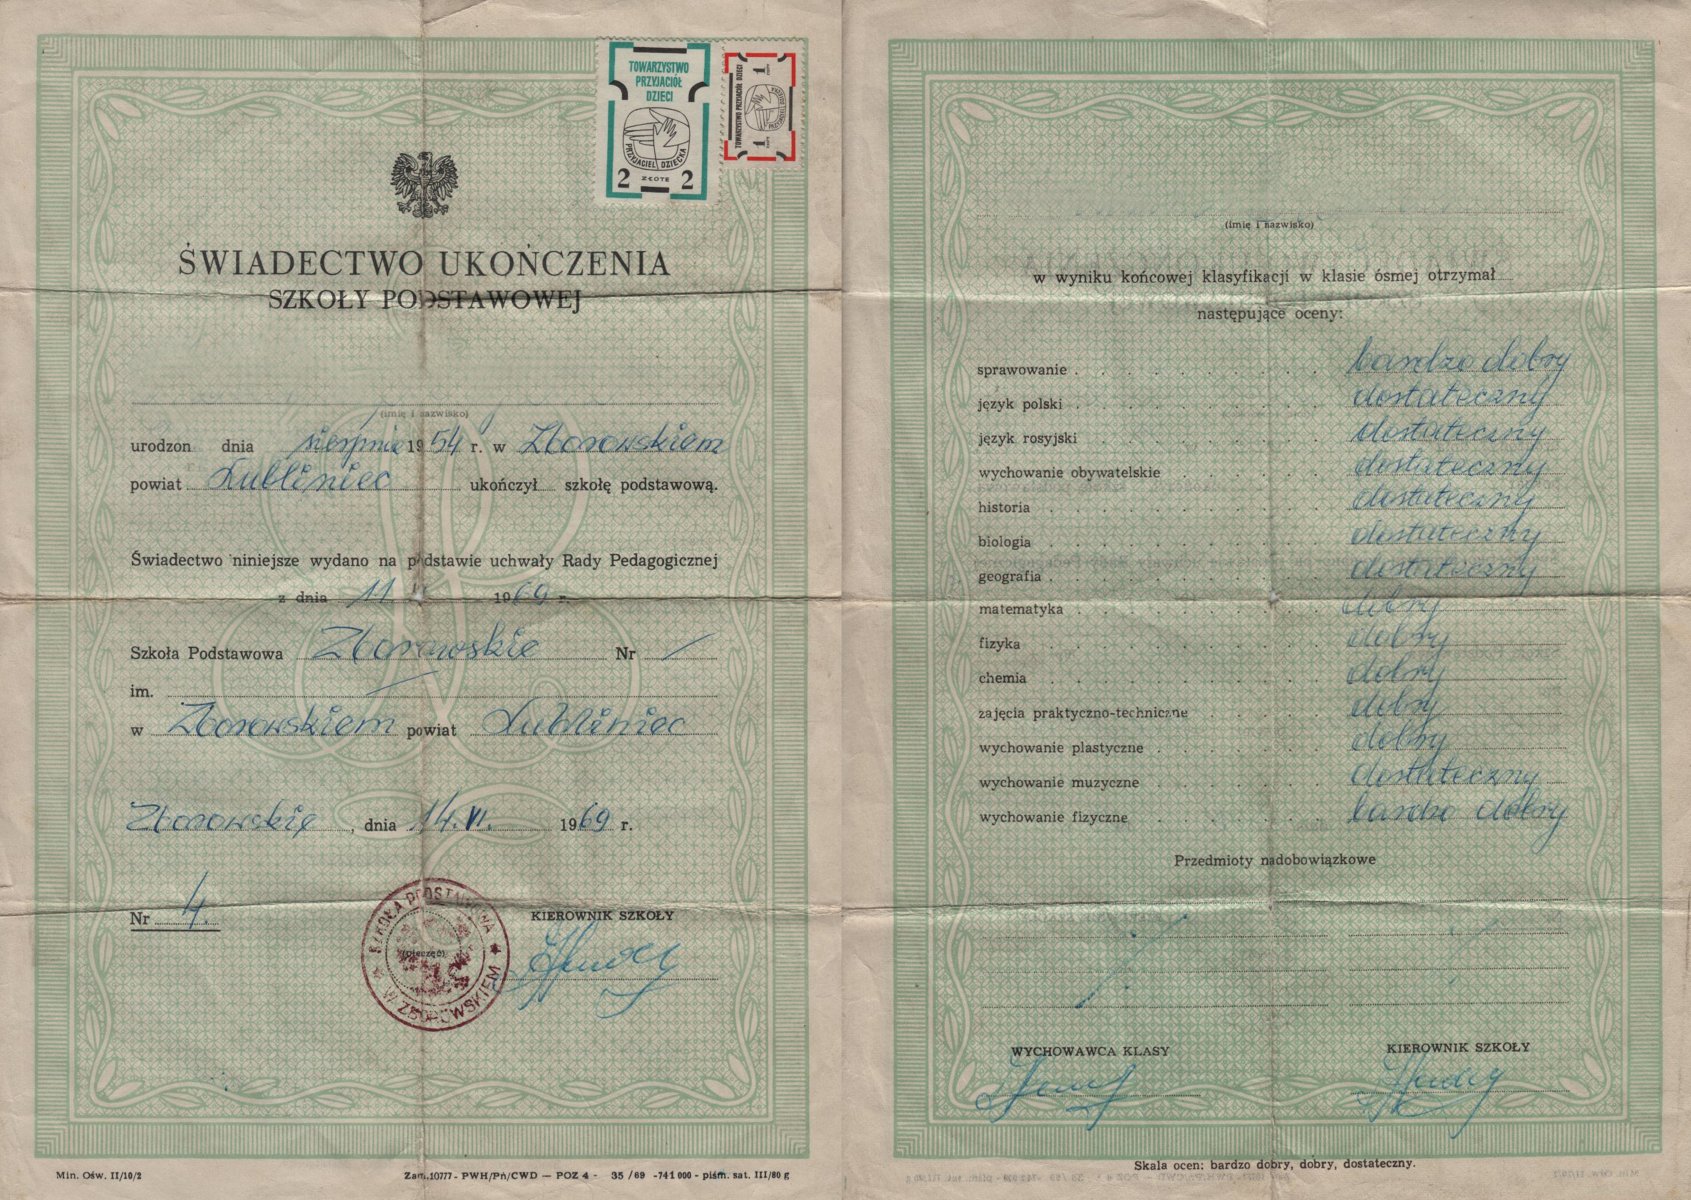 TOWARZYSTWO
PRZYJACIÓŁ
DZIECI
PRZYJACIEL DZIECKA
2 ZŁOTE 2
TOWARZYSTWO PRZYJACIÓŁ DZIECI
1 1
ŚWIADECTWO UKOŃCZENIA
SZKOŁY PODSTAWOWEJ
(imię i nazwisko)
urodzon dnia sierpnia 1954 r. w Zborowskiem
powiat Lubliniec ukończył szkołę podstawową.
Świadectwo niniejsze wydano na podstawie uchwały Rady Pedagogicznej
z dnia 11 1969 r.
Szkoła Podstawowa Zborowskie Nr /
im.
w Zborowskiem powiat Lubliniec
Zborowskie, dnia 14. VI. 1969 r.
Nr 4.
KIEROWNIK SZKOŁY
SZKOŁA PODSTAWOWA
(pieczęć)
W ZBOROWSKIEM
Min. Ośw. II/10/2
Zam. 10777 - PWH/Pń/CWD — POZ 4 - 35/69 -741 000 - piśm. sat. III/80 g
(imię i nazwisko)
w wyniku końcowej klasyfikacji w klasie ósmej otrzymał
następujące oceny:
sprawowanie bardzo dobry
język polski dostateczny
język rosyjski dostateczny
wychowanie obywatelskie dostateczny
historia dostateczny
biologia dostateczny
geografia dostateczny
matematyka dobry
fizyka dobry
chemia dobry
zajęcia praktyczno-techniczne dobry
wychowanie plastyczne dobry
wychowanie muzyczne dostateczny
wychowanie fizyczne bardzo dobry
Przedmioty nadobowiązkowe
WYCHOWAWCA KLASY
KIEROWNIK SZKOŁY
Skala ocen: bardzo dobry, dobry, dostateczny.